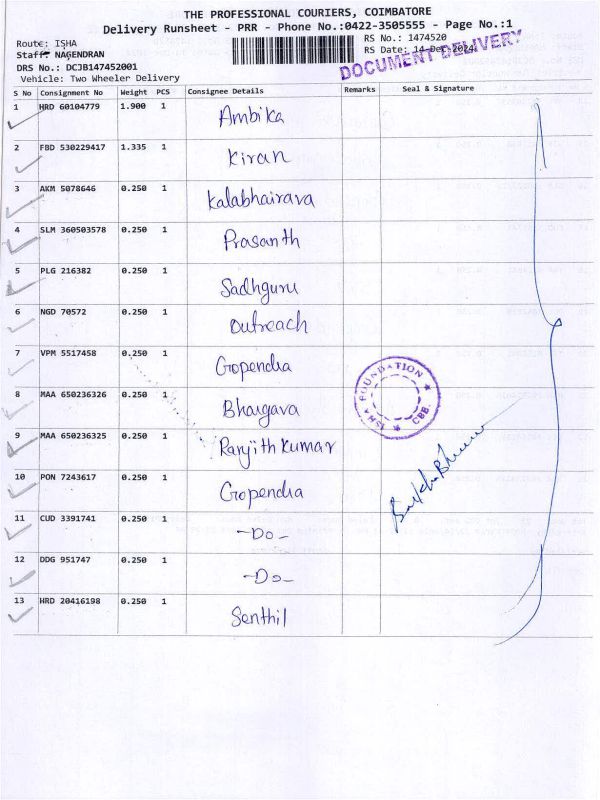 THE PROFESSIONAL COURIERS, COIMBATORE
Delivery Runsheet - PRR - Phone No.:0422-3505555 - Page No.:1
Route: ISHA
RS No.: 1474520
Staff: NAGENDRAN
RS Date: 14-Dec-2024
DRS No.: DCJB147452001
DOCUMENT DELIVERY
Vehicle: Two Wheeler Delivery
S No Consignment No Weight PCS Consignee Details Remarks Seal & Signature
1 HRD 60104779 1.900 1 Ambika
2 FBD 530229417 1.335 1 Kiran
3 AKM 5078646 0.250 1 Kalabhairava
4 SLM 360503578 0.250 1 Prasanth
5 PLG 216382 0.250 1 Sadhguru
6 NGD 70572 0.250 1 Outreach
7 VPM 5517458 0.250 1 Gopendra
8 MAA 650236326 0.250 1 Bhargava
9 MAA 650236325 0.250 1 Ranjith Kumar
10 PON 7243617 0.250 1 Gopendra
11 CUD 3391741 0.250 1 -Do-
12 DDG 951747 0.250 1 -Do-
13 HRD 20416198 0.250 1 Senthil
ISHA FOUNDATION
CBE.